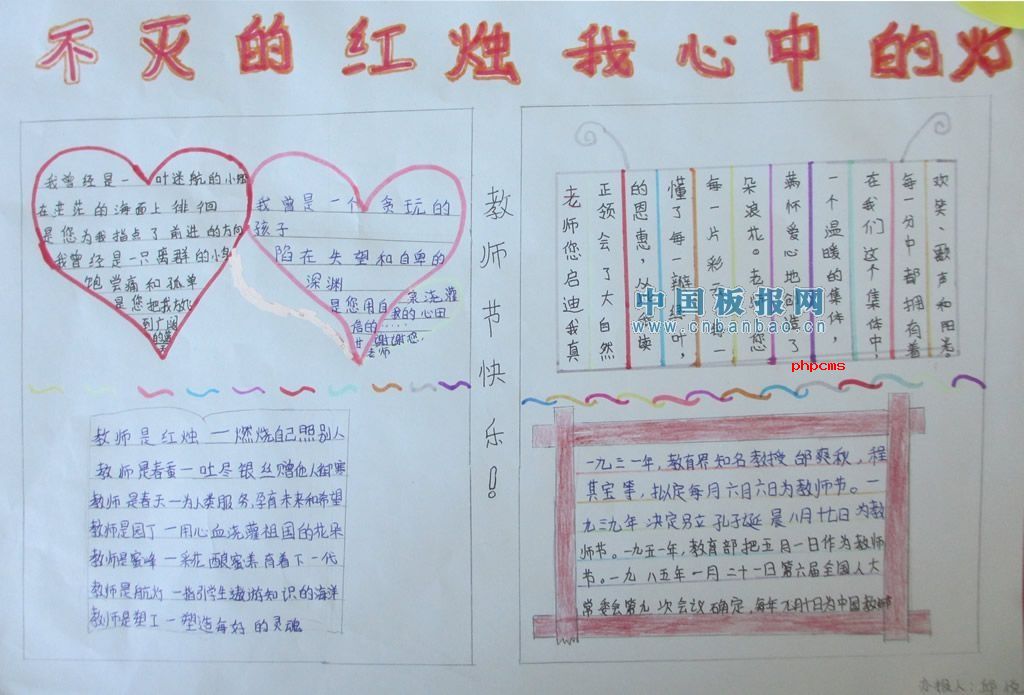 不灭的红烛 我心中的灯
我曾经是一叶迷航的小船
在茫茫的海面上徘徊
是您为我指点了前进的方向
我曾经是一只离群的小鸟
饱尝痛和孤单
是您把我放心
到广阔
我曾是一个贪玩的
孩子
陷在失望和自卑的
深渊
是您用自 浇灌
我的心田
谢谢您,
老师
教师节快乐!
老师您启迪我真
正领会了大自然
的恩惠,从 读
懂了每一瓣绿叶,
每一片彩
朵浪花。老师您
满怀爱心地创造了
一个温暖的集体,
在我们这个集体中,
每一分中都拥有着
欢笑、歌声和阳光。
中国板报网
www.cnbanbao.cn
phpcms
教师是红烛一燃烧自己照别人
教师是春蚕一吐尽银丝赠他人御寒
教师是春天一为人类服务,孕育未来和希望
教师是园丁一用心血浇灌祖国的花朵
教师是蜜蜂一采花酿蜜养育着下一代
教师是航灯一指引学生遨游知识的海洋
教师是塑工一塑造每好的灵魂
一九三一年,教育界知名教授邰爽秋,程
其宝等,拟定每月六月六日为教师节。一
九三九年决定另立孔子诞晨八月廿七日为教
师节。一九五一年,教育部把五月一日作为教师
节。一九八五年一月二十一日第六届全国人大
常委会第九次会议确定,每年九月十日为中国教师节
办报人: